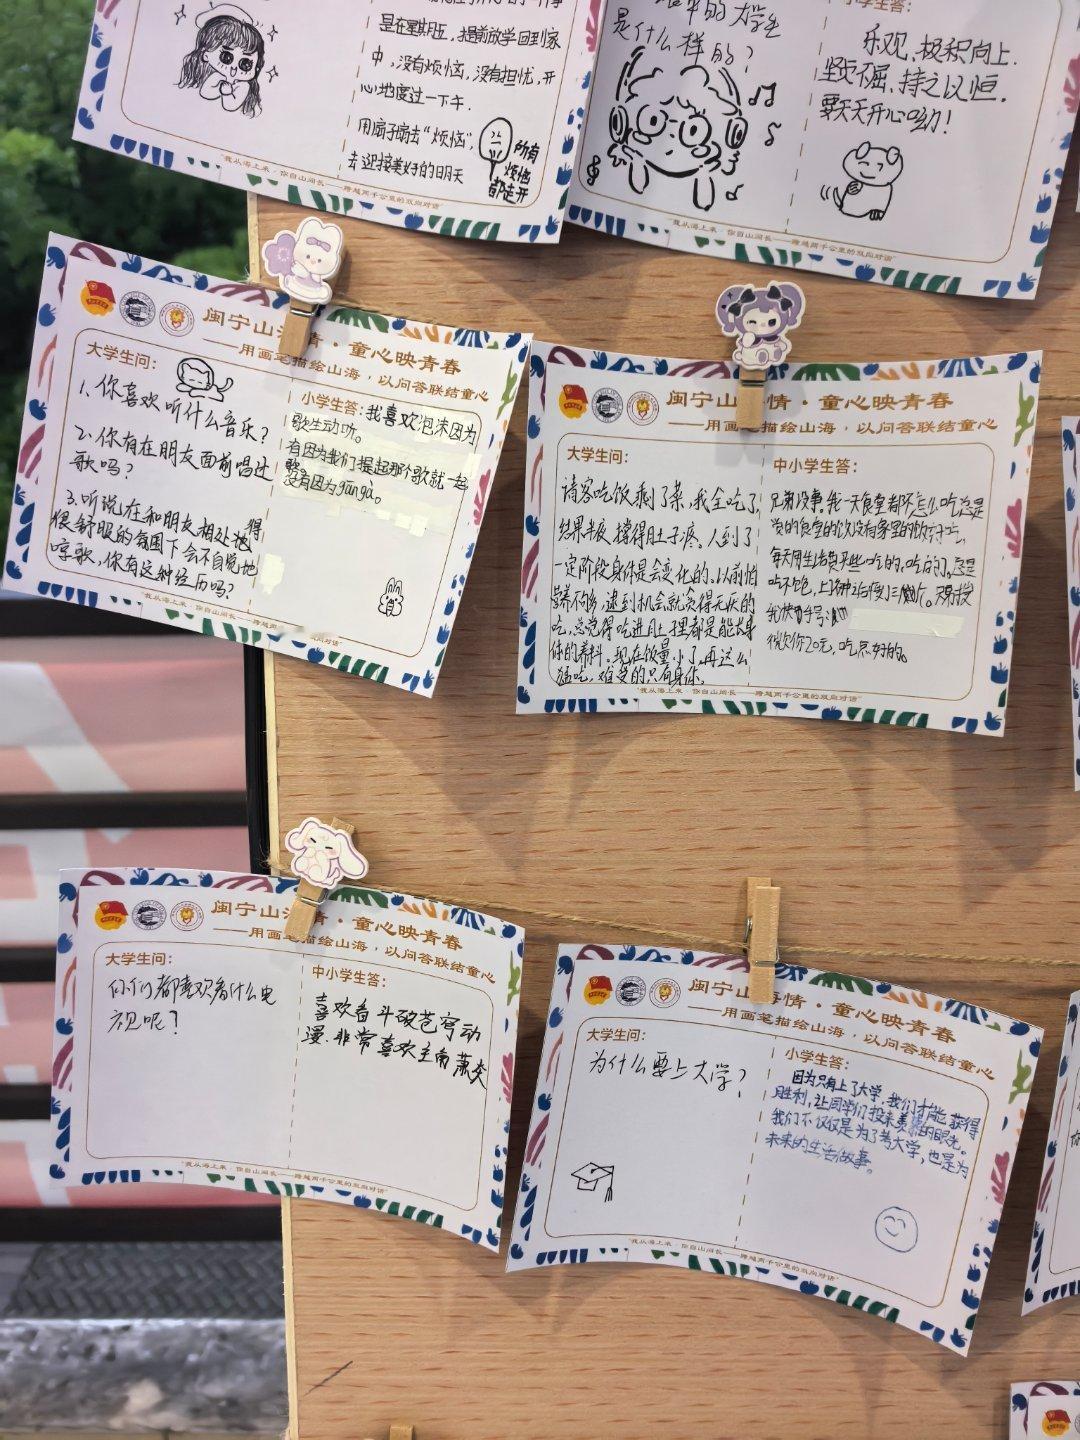 是在星期五，提前放学回到家
中，没有烦恼，没有担忧，开
心地度过一下午.
用扇子扇去“烦恼”，
去迎接美好的明天
所有
烦恼
都走开
“我从海上来，你自山间长——跨越两千公里的双向对话”
的大学生
是什么样的？
小学生答：
乐观，极积向上.
坚贞不屈、持之以恒.
要天天开心呦！
“我从海上来，你自山间长——跨越两千公里的双向对话”
闽宁山海情·童心映青春
——用画笔描绘山海，以问答联结童心
大学生问：
1、你喜欢听什么音乐？
2、你有在朋友面前唱过
歌吗？
3、听说在和朋友相处地得
很舒服的氛围下会不自觉地
哼歌，你有这种经历吗？
小学生答：我喜欢泡沫因为
歌生动听。
有因为我们提起那个歌就一起
没有因为gāngà。
“我从海上来，你自山间长
双向对话”
闽宁山海情·童心映青春
——用画笔描绘山海，以问答联结童心
大学生问：
请客吃饭剩了菜，我全吃了，
结果半夜撑得肚子疼。人到了
一定阶段身体是会变化的。以前怕
营养不够，逮到机会就贪得无厌的
吃，总觉得吃进肚子里都是能长身
体的养料。现在饭量小了，再这么
猛吃，难受的只有身体。
中小学生答：
兄弟没事。我一天食堂都不怎么吃总是
觉的食堂的饭没有家里的饭好吃，
每天用生活费买些吃的，吃的
吃不饱，上
我快手号
微你20元，吃点好的。
“我从海上来，你自山间长——跨越两千公里的双向对话”
闽宁山海情·童心映青春
——用画笔描绘山海，以问答联结童心
大学生问：
你们都喜欢看什么电
视呢？
中小学生答：
喜欢看斗破苍穹动
漫.非常喜欢主角萧炎
“我从海上来，你自山间长——跨越两千公里的双向对话”
闽宁山海情·童心映青春
——用画笔描绘山海，以问答联结童心
大学生问：
为什么要上大学？
小学生答：
因为只有上了大学，我们才能获得
胜利，让同学们投来羡慕的眼光。
我们不仅仅是为了考大学，也是为
未来的生活做事。
“我从海上来，你自山间长——跨越两千公里的双向对话”